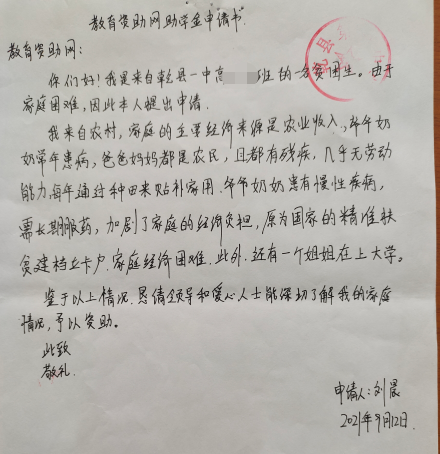 教育资助网助学金申请书
教育资助网:
你们好!我是来自乾县一中高 班的一名贫困生。由于
家庭困难,因此本人提出申请.
我来自农村,家庭的主要经济来源是农业收入、爷爷奶
奶常年患病,爸爸妈妈都是农民,且都有残疾,几乎无劳动
能力.每年通过种田来贴补家用.爷爷奶奶患有慢性疾病,
需长期服药,加剧了家庭的经济负担,原为国家的精准扶
贫建档立卡户.家庭经济困难.此外.还有一个姐姐在上大学。
鉴于以上情况.恳请领导和爱心人士能深切了解我的家庭
情况,予以资助。
此致
敬礼
申请人:刘晨
2021年9月12日.